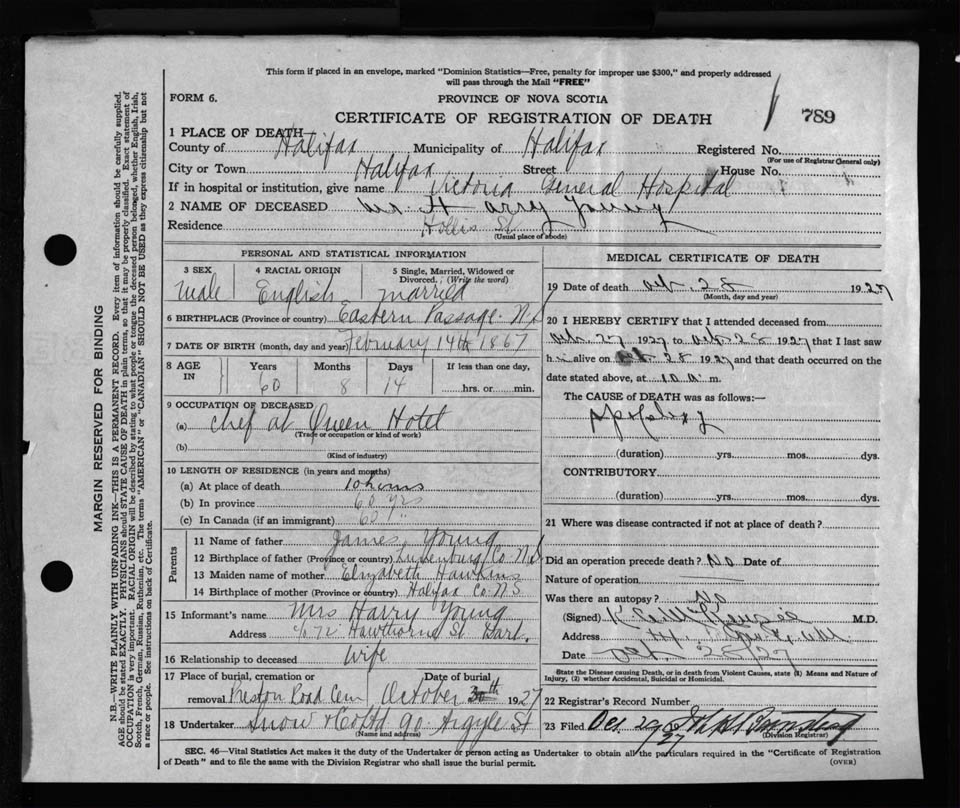 This form if placed in an envelope, marked "Dominion Statistics—Free, penalty for improper use $300," and properly addressed
will pass through the Mail "FREE"
FORM 6. PROVINCE OF NOVA SCOTIA
CERTIFICATE OF REGISTRATION OF DEATH 789
1 PLACE OF DEATH—
County of Halifax Municipality of Halifax Registered No.
(For use of Registrar General only)
City or Town Halifax Street House No.
If in hospital or institution, give name Victoria General Hospital
2 NAME OF DECEASED Mr. Harry Young
Residence Hollis St
(Usual place of abode)
MARGIN RESERVED FOR BINDING
N.B.—WRITE PLAINLY WITH UNFADING INK—THIS IS A PERMANENT RECORD. Every item of information should be carefully supplied.
AGE should be stated EXACTLY. PHYSICIANS should STATE CAUSE OF DEATH in plain terms, so that it may be properly classified. Exact statement of
OCCUPATION is very important. RACIAL ORIGIN will be described by stating to what people or tongue the deceased person belonged, whether English, Irish,
Scotch, French, German, Russian, Ruthenian, etc. The terms "AMERICAN" or "CANADIAN" SHOULD NOT BE USED as they express citizenship but not
a race or people. See instructions on back of Certificate.
PERSONAL AND STATISTICAL INFORMATION
3 SEX 4 RACIAL ORIGIN 5 Single, Married, Widowed or
Divorced. (Write the word)
Male English Married
6 BIRTHPLACE (Province or country) Eastern Passage N.S
7 DATE OF BIRTH (month, day and year) February 14th 1867
8 AGE IN Years Months Days If less than one day,
60 8 14 hrs. or min.
9 OCCUPATION OF DECEASED
(a) Chef at Queen Hotel
(Trade or occupation or kind of work)
(b)
(Kind of industry)
10 LENGTH OF RESIDENCE (in years and months)
(a) At place of death 10 hours
(b) In province 60 yrs
(c) In Canada (if an immigrant) 60 yrs
Parents
11 Name of father James Young
12 Birthplace of father (Province or country) Lunenburg Co. N.S
13 Maiden name of mother Elizabeth Hawkins
14 Birthplace of mother (Province or country) Halifax Co. N.S.
15 Informant's name Mrs Harry Young
Address 72 Hawthorne St Dart.
16 Relationship to deceased Wife
17 Place of burial, cremation or Date of burial
removal Preston Road Cem October 30th 1927
18 Undertaker Snow & Co Ltd 90 Argyle St
(Name and address)
MEDICAL CERTIFICATE OF DEATH
19 Date of death Oct. 28 1927
(Month, day and year)
20 I HEREBY CERTIFY that I attended deceased from
Oct. 27 1927 to Oct. 28 1927 that I last saw
him alive on Oct 28 1927 and that death occurred on the
date stated above, at 10 a. m.
The CAUSE OF DEATH was as follows:—
Apoplexy
(duration) yrs. mos. dys.
CONTRIBUTORY
(duration) yrs. mos. dys.
21 Where was disease contracted if not at place of death?
Did an operation precede death? No Date of
Nature of operation
Was there an autopsy? No
(Signed) M.D.
Address
Date Oct. 28/27
State the Disease causing Death, or in death from Violent Causes, state (1) Means and Nature of
Injury, (2) whether Accidental, Suicidal or Homicidal.
22 Registrar's Record Number
23 Filed Oct 29/27
(Division Registrar)
SEC. 46—Vital Statistics Act makes it the duty of the Undertaker or person acting as Undertaker to obtain all the particulars required in the "Certificate of Registration
of Death" and to file the same with the Division Registrar who shall issue the burial permit. (OVER)